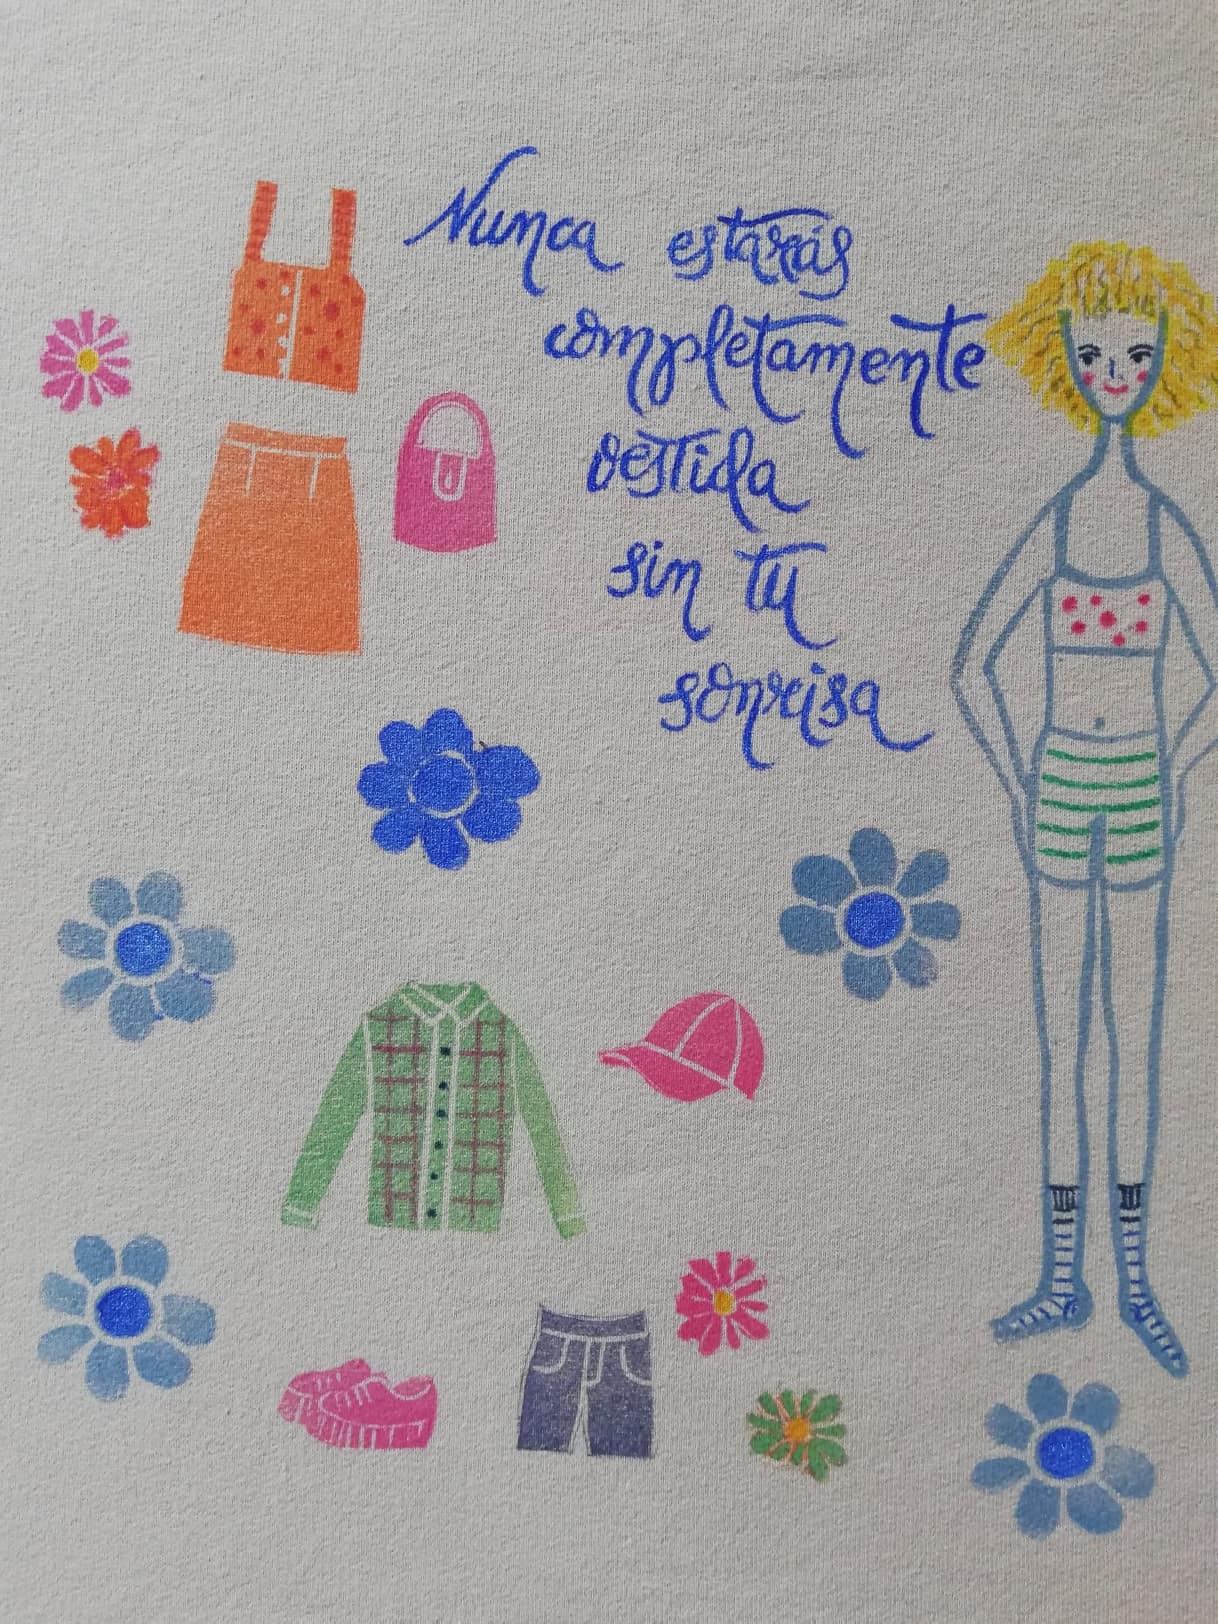 Nunca estarás
completamente
vestida
sin tu
sonrisa